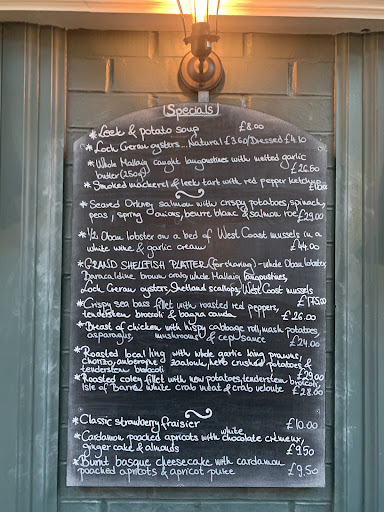 Specials
*Leek & potato soup £8.00
*Loch Creran oysters... Natural £3.60/Dressed £4.10
*Whole Mallaig caught langoustines with melted garlic
butter (250g) £26.50
*Smoked mackerel & leek tart with red pepper ketchup
*Seared Orkney salmon with crispy potatoes, spinach,
peas, spring onions, beurre blanc & salmon roe £29.00
*½ Oban lobster on a bed of West Coast mussels in a
white wine & garlic cream £44.00
*GRAND SHELLFISH PLATTER (for sharing) - whole Oban lobster,
Barcaldine brown crab, whole Mallaig langoustines,
Loch Creran oysters, Shetland scallops, West Coast mussels
£175.00
*Crispy sea bass fillet with roasted red peppers,
tenderstem broccoli & bagna cauda £26.00
*Breast of chicken with hispy cabbage, roll, mash potatoes,
asparagus, mushrooms & cep sauce £24.00
*Roasted local ling with whole garlic king prawns,
chorizo, aubergine zaalouk, herb crushed potatoes &
tenderstem broccoli £29.00
*Roasted coley fillet with new potatoes, tenderstem broccoli,
Isle of Barra white crab meat & crab velouté £28.00
*Classic strawberry fraisier £10.00
*Cardamon poached apricots with white chocolate crémeux,
ginger cake & almonds £9.50
*Burnt basque cheesecake with cardamon
poached apricots & apricot purée £9.50